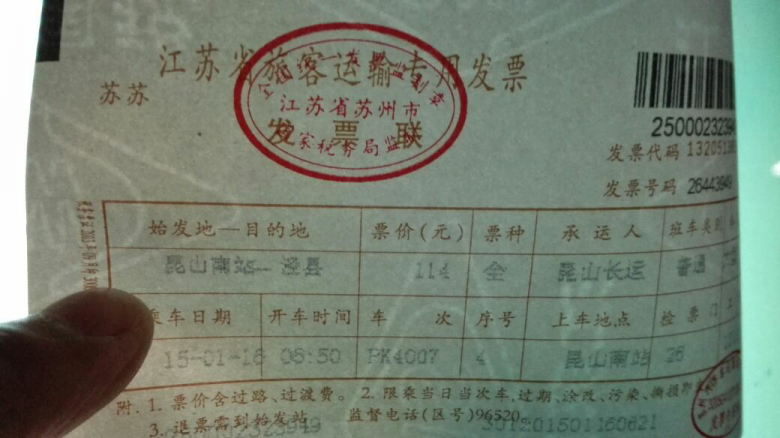 江苏省旅客运输专用发票
苏苏
江苏省苏州市
发票联
国家税务局监制
25000232394
发票代码 132051
发票号码 26443949
始发地—目的地 票价(元) 票种 承运人 班车类别
昆山南站— 泾县 114 全 昆山长运 普通
乘车日期 开车时间 车次 序号 上车地点 检票口
15-01-16 06:50 PK4007 4 昆山南站 26
附.1.票价含过路、过渡费。2.限乘当日当次车,过期、涂改、污染、撕损
3.退票需到始发站 监督电话(区号)96520.